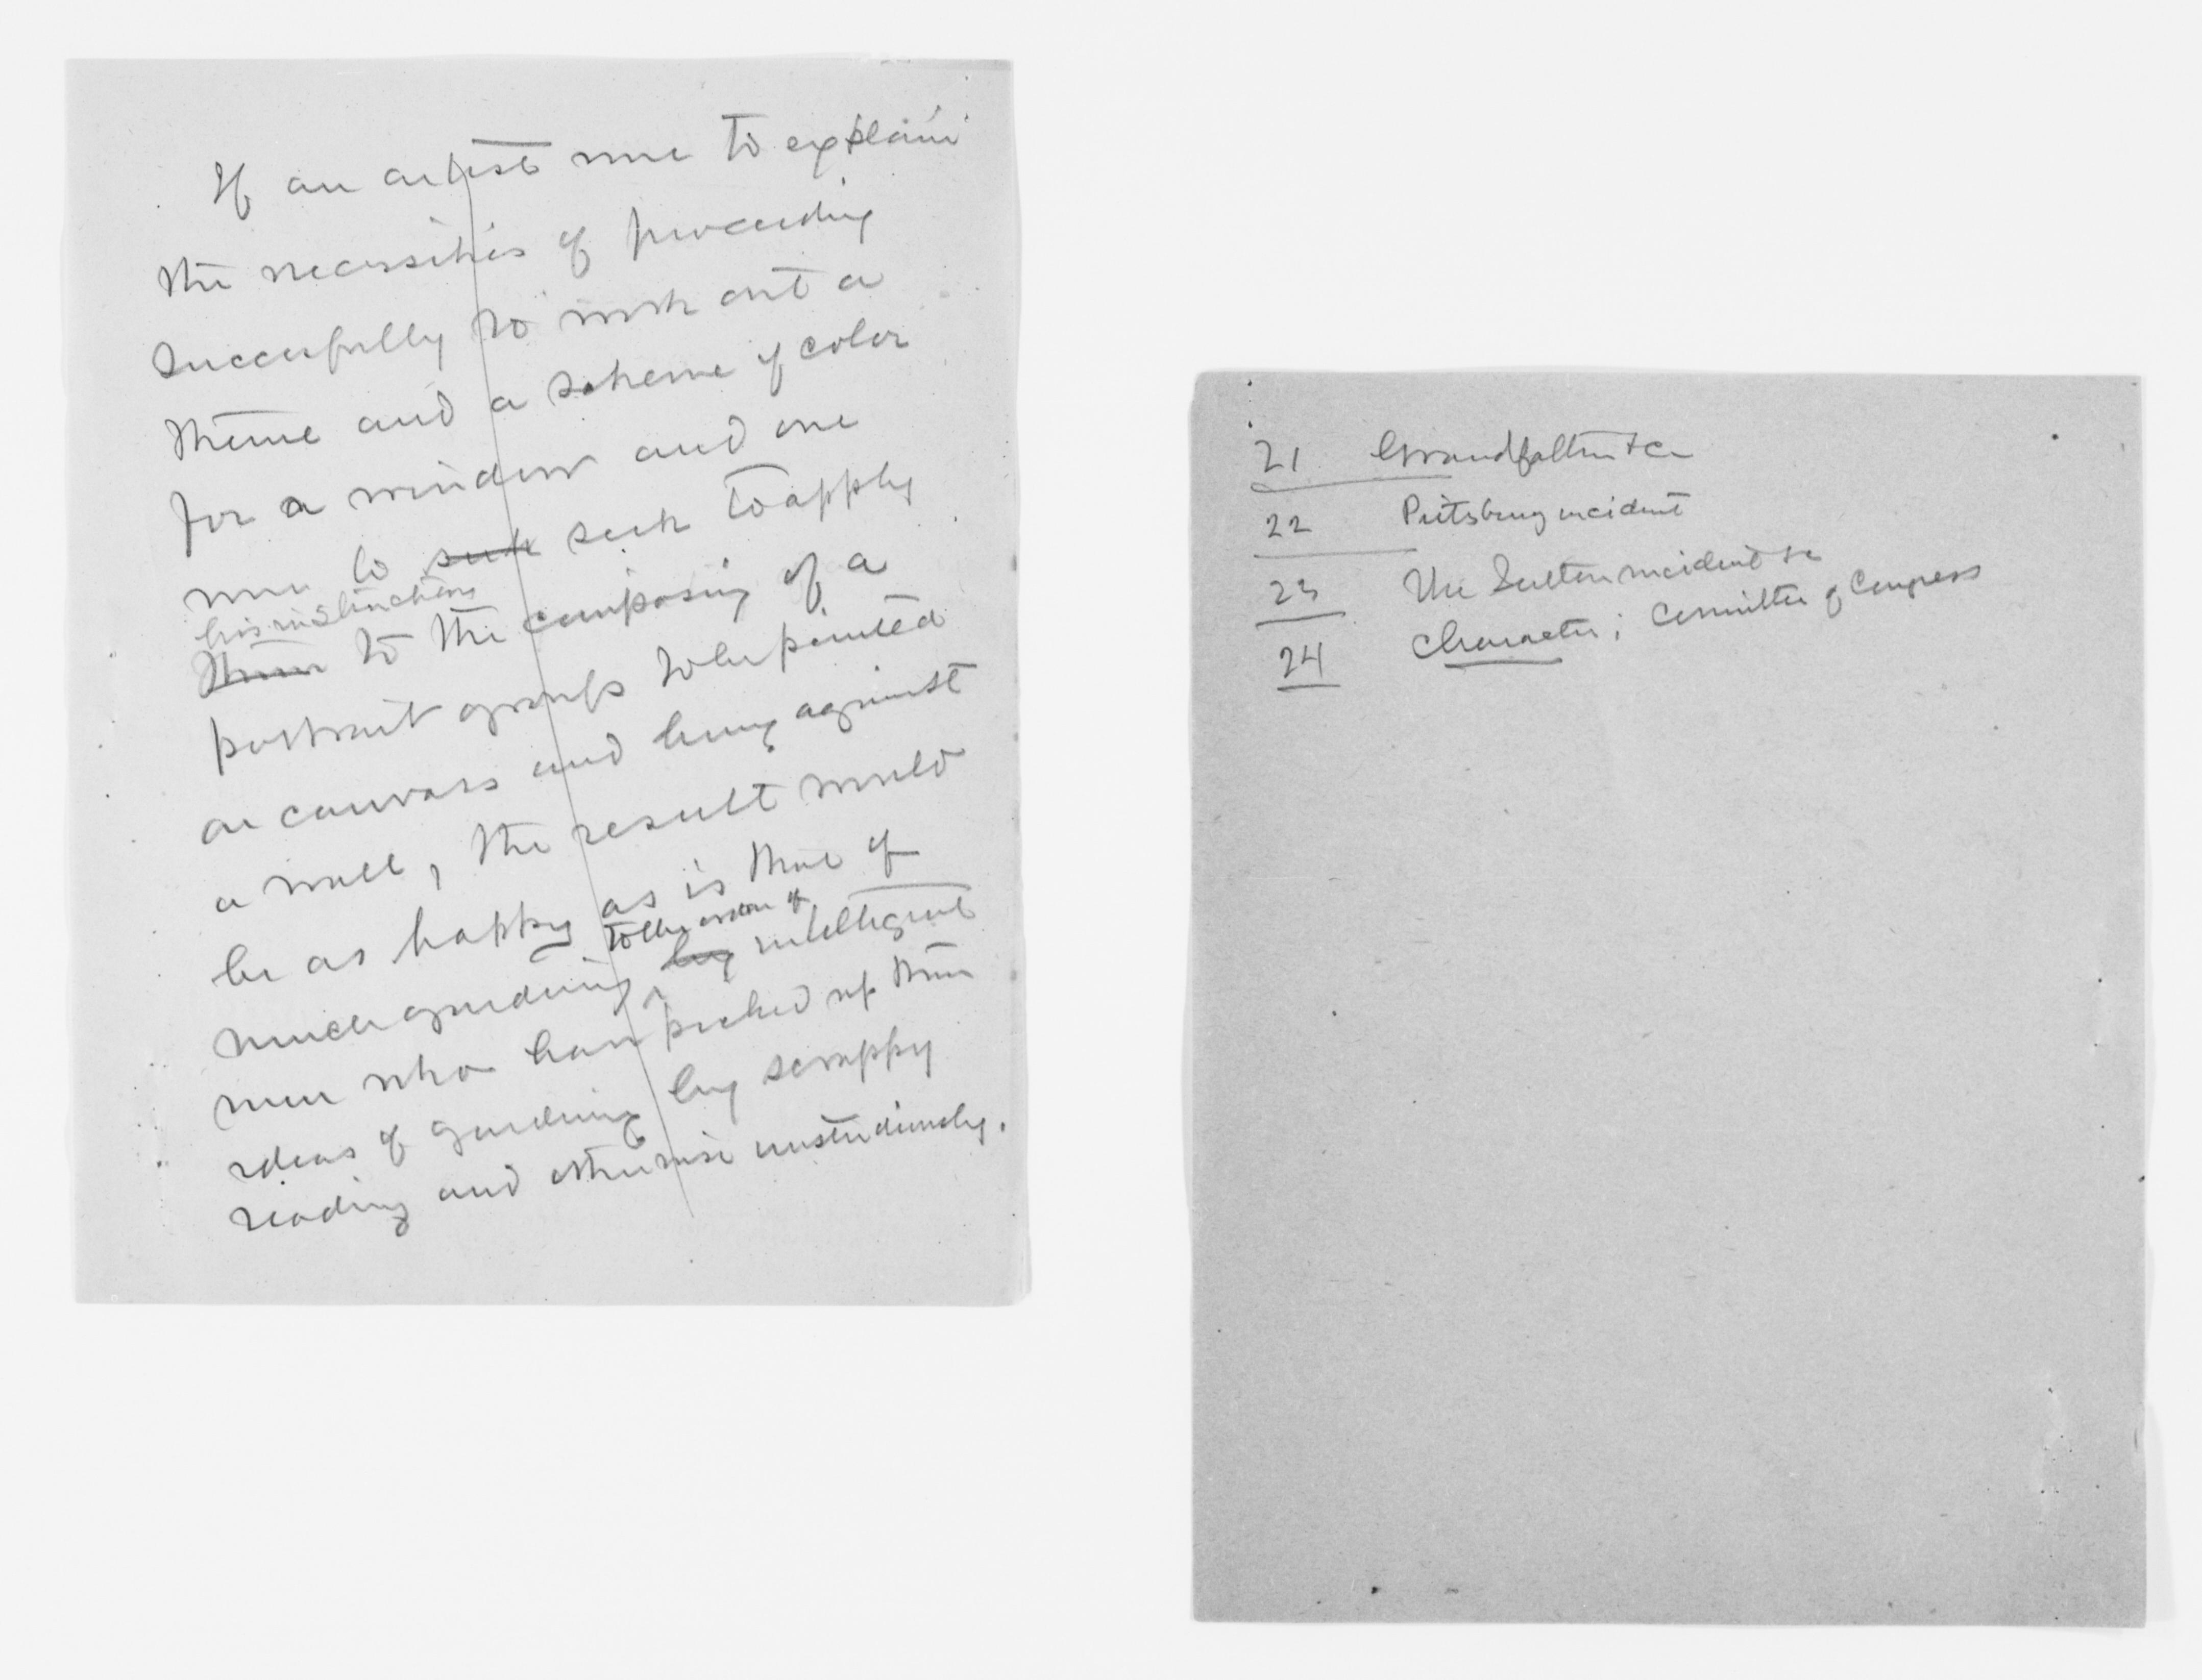 If an artist were to explain
the necessities of proceeding
successfully to work out a
theme and a scheme of color
for a window and one
were to seek seek to apply
his instructions
them to the composing of a
portrait groups to be painted
on canvass and hung against
a wall, the result would
be as happy as is that of
to the order of
much gardening by intelligent
men who have picked up their
ideas of gardening by scrappy
reading and otherwise unstudiously.
21 Grandfather &c
22 Pittsburg incident
23 The Sutton incident &c
24 Character; Committee of Congress